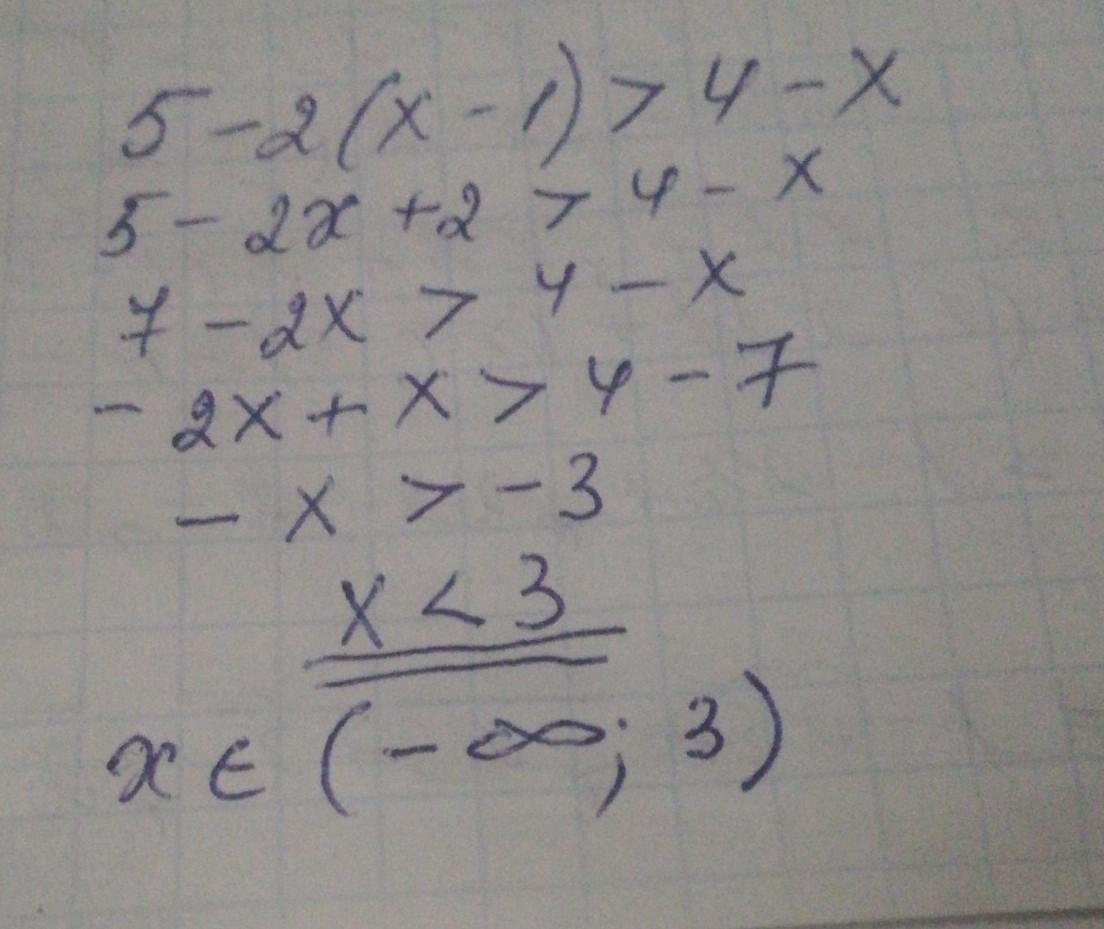 5 - 2(x - 1) > 4 - x
5 - 2x + 2 > 4 - x
7 - 2x > 4 - x
- 2x + x > 4 - 7
- x > - 3
x < 3
x ∈ (- ∞; 3)